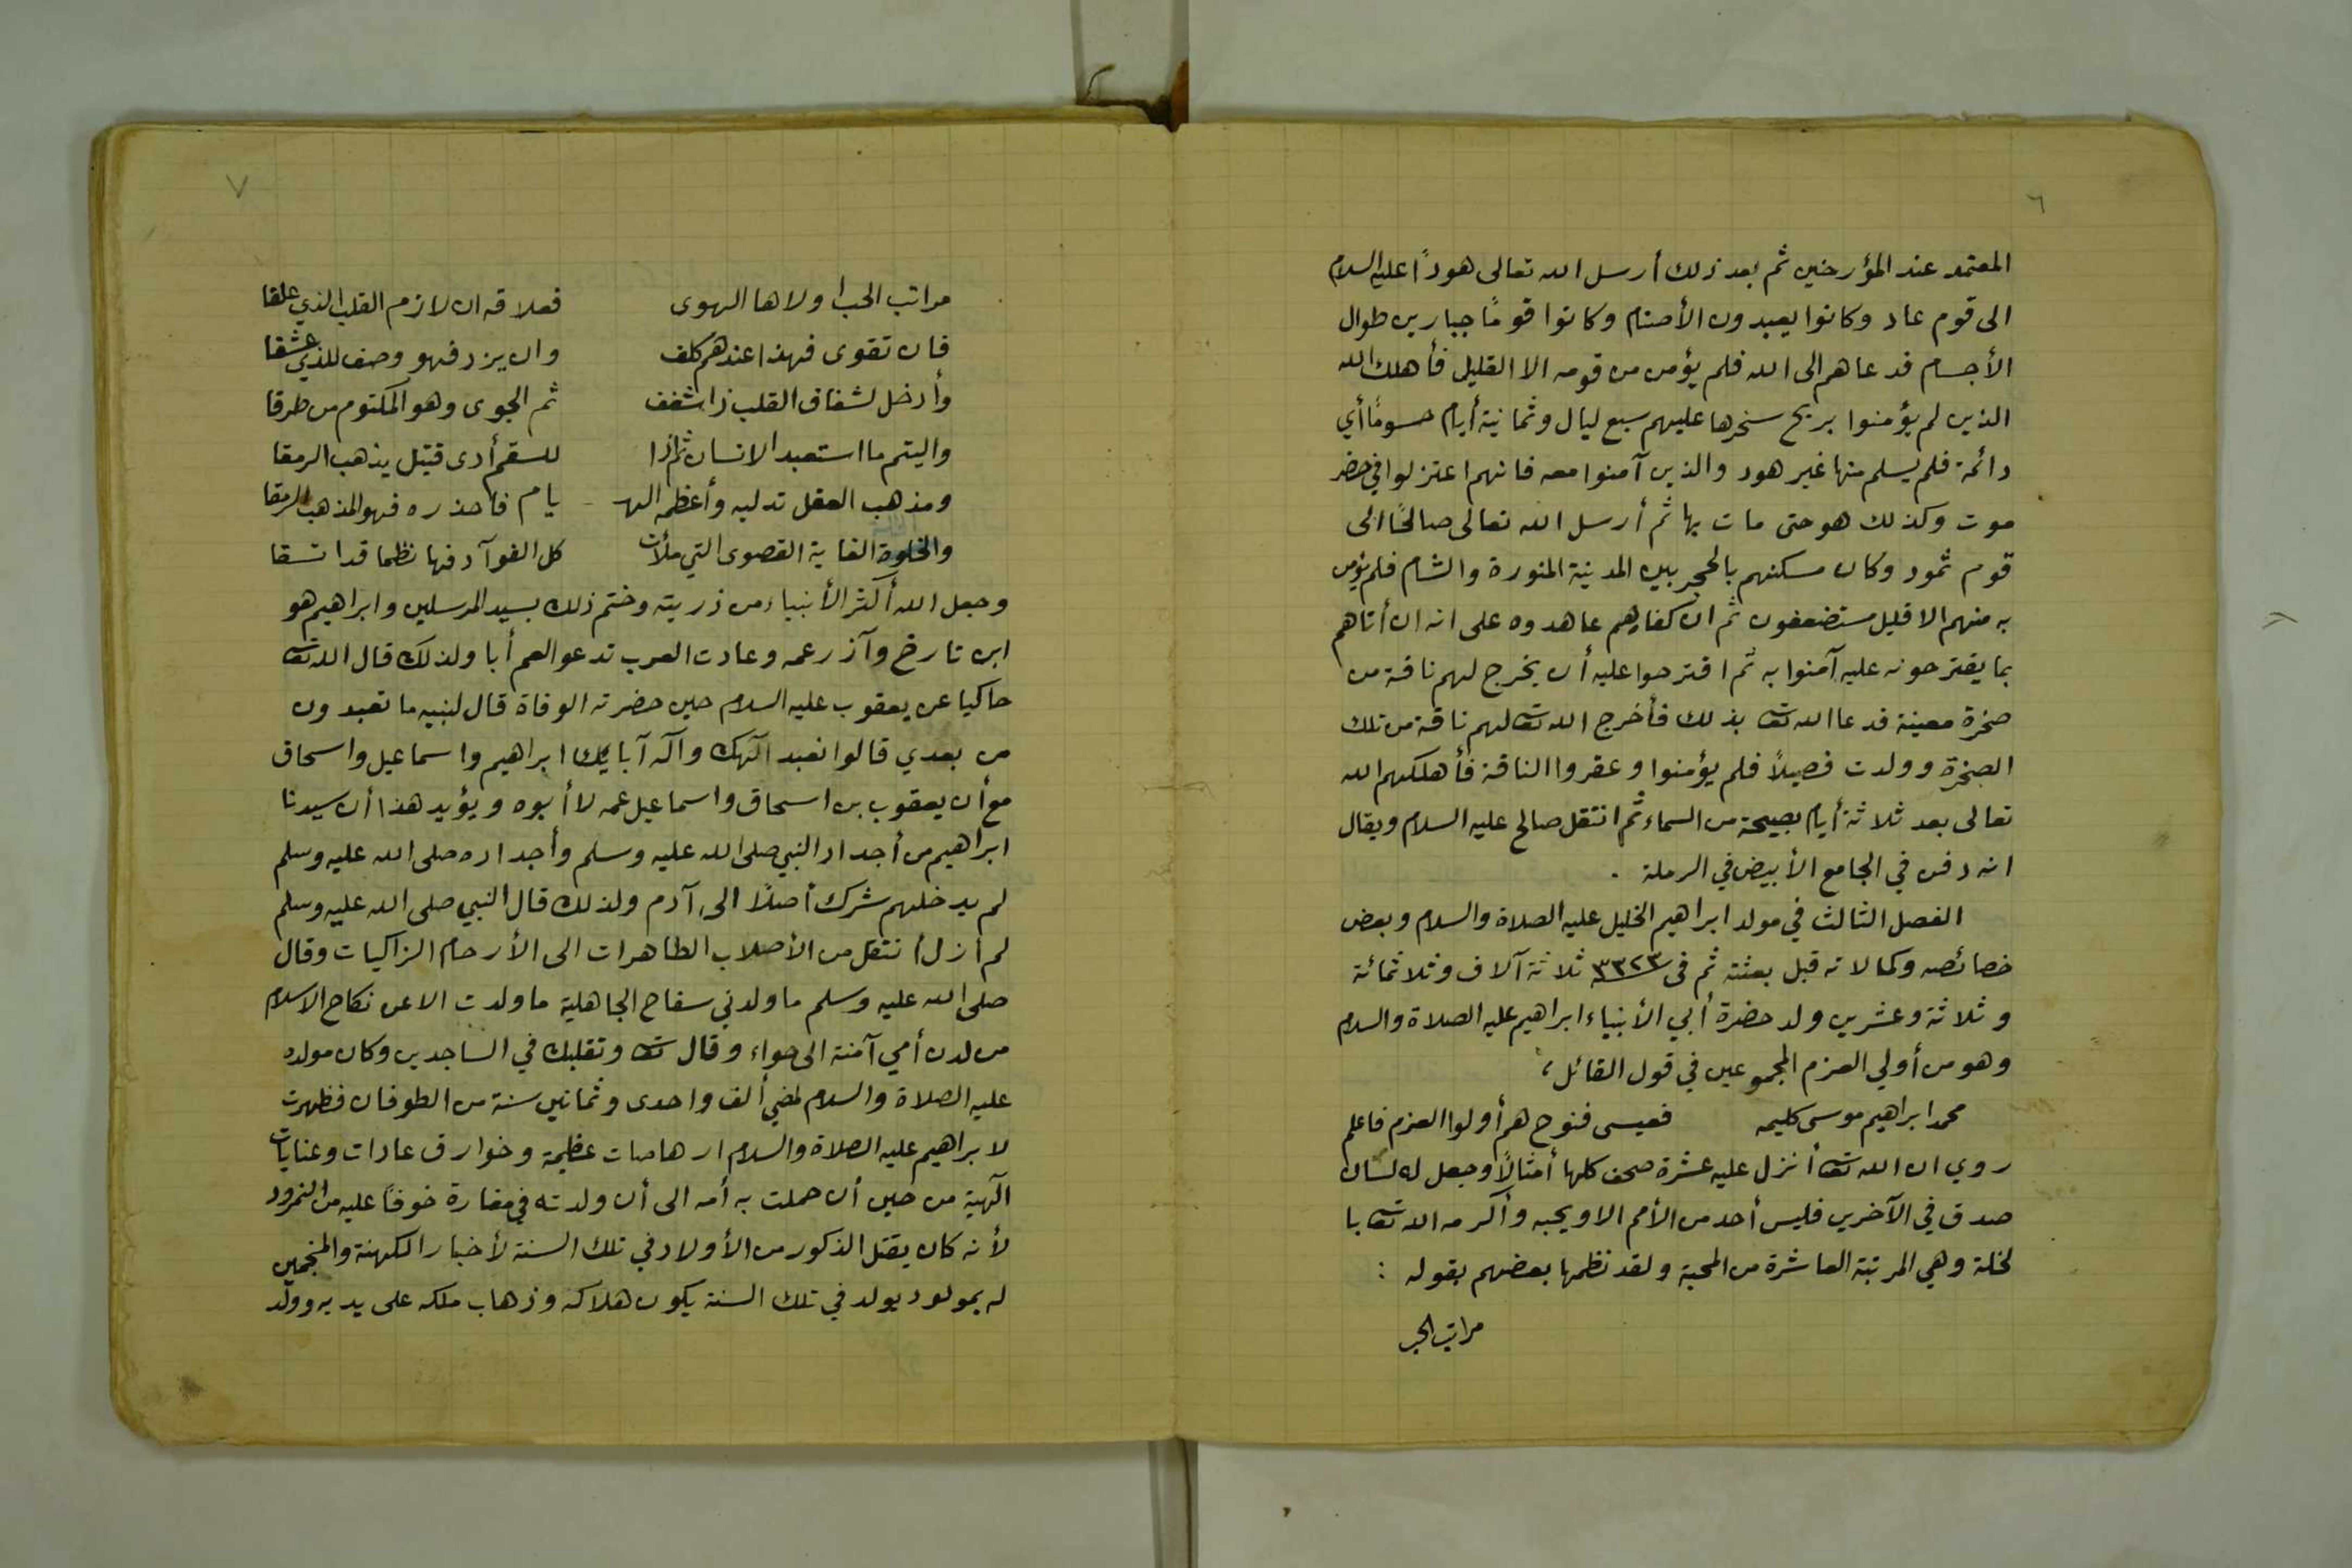 ٦
المعتمد عند المؤرخين ثم بعد ذلك أرسل الله تعالى هودًا عليه السلام
الى قوم عاد وكانوا يعبدون الأصنام وكانوا قومًا جبارين طوال
الأجسام فدعاهم الى الله فلم يؤمن من قومه الا القليل فأهلك الله
الذين لم يؤمنوا بريح سخرها عليهم سبع ليال وثمانية أيام حسومًا أي
دائمة فلم يسلم منها غير هود والذين آمنوا معه فانهم اعتزلوا في حضر
موت وكذلك هو حتى مات بها ثم أرسل الله تعالى صالحًا الى
قوم ثمود وكان مسكنهم بالحجر بين المدينة المنورة والشام فلم يؤمن
به منهم الا قليل مستضعفون ثم ان كفارهم عاهدوه على انه ان أتاهم
بما يقترحونه عليه آمنوا به ثم اقترحوا عليه أن يخرج لهم ناقة من
صخرة معينة فدعا الله تعا بذلك فأخرج الله تعا لهم ناقة من تلك
الصخرة وولدت فصيلاً فلم يؤمنوا وعقروا الناقة فأهلكهم الله
تعالى بعد ثلاثة أيام بصيحة من السماء ثم انتقل صالح عليه السلام ويقال
انه دفن في الجامع الأبيض في الرملة .
الفصل الثالث في مولد ابراهيم الخليل عليه الصلاة والسلام وبعض
خصائصه وكمالاته قبل بعثته ثم في ٣٣٢٣ ثلاثة آلاف وثلاثمائة
وثلاثة وعشرين ولد حضرة أبي الأنبياء ابراهيم عليه الصلاة والسلام
وهو من أولي العزم المجموعين في قول القائل ،
محمد ابراهيم موسى كليمه فعيسى فنوح هم أولوا العزم فاعلم
روي ان الله تعا أنزل عليه عشرة صحف كلها أمثالاً وجعل له لسان
صدق في الآخرين فليس أحد من الأمم الا ويحبه وأكرمه الله تعا با
لخلة وهي المرتبة العاشرة من المحبة ولقد نظمها بعضهم بقوله :
مراتب الحب
٧
مراتب الحب اولاها الهوى فعلاقه ان لازم القلب الذي علقا
فان تقوى فهذا عندهم كلف وان يزد فهو وصف للذي عشقا
وأدخل لشغاف القلب ذا شغف ثم الجوى وهو المكتوم من طرقا
واليتم ما استعبد الانسان ثم اذا للسقم أدى قتيل يذهب الرمقا
ومذهب العقل تدليه وأعظمه الهـ يام فاحذره فهو المذهب الرمقا
والخلوة الغاية القصوى التي ملأت كل الفوآد فها نظما قد اتسقا
وجعل الله أكثر الأنبياء من ذريته وختم ذلك بسيد المرسلين وابراهيم هو
ابن تارخ وآزر عمه وعادت العرب تدعو العم أبا ولذلك قال الله تعا
حاكيا عن يعقوب عليه السلام حين حضرته الوفاة قال لبنيه ما تعبدون
من بعدي قالوا نعبد آلهك وآله آبايك ابراهيم واسماعيل واسحاق
مع أن يعقوب بن اسحاق واسماعيل عمه لا أبوه ويؤيد هذا أن سيدنا
ابراهيم من أجداد النبي صلى الله عليه وسلم وأجداده صلى الله عليه وسلم
لم يدخلهم شرك أصلاً الى آدم ولذلك قال النبي صلى الله عليه وسلم
لم أزل أنتقل من الأصلاب الطاهرات الى الأرحام الزاكيات وقال
صلى الله عليه وسلم ما ولدني سفاح الجاهلية ما ولدت الا عن نكاح الاسلام
من لدن أمي آمنة الى حواء وقال تعا وتقلبك في الساجدين وكان مولده
عليه الصلاة والسلام لمضي ألف واحدى وثمانين سنة من الطوفان فظهرت
لابراهيم عليه الصلاة والسلام ارهاصات عظيمة وخوارق عادات وعنايات
آلهية من حين أن حملت به أمه الى أن ولدته في مغارة خوفاً عليه من النمرود
لأنه كان يقتل الذكور من الأولاد في تلك السنة لأخبار الكهنة والمنجمين
له بمولود يولد في تلك السنة يكون هلاكه وذهاب ملكه على يديه وولد